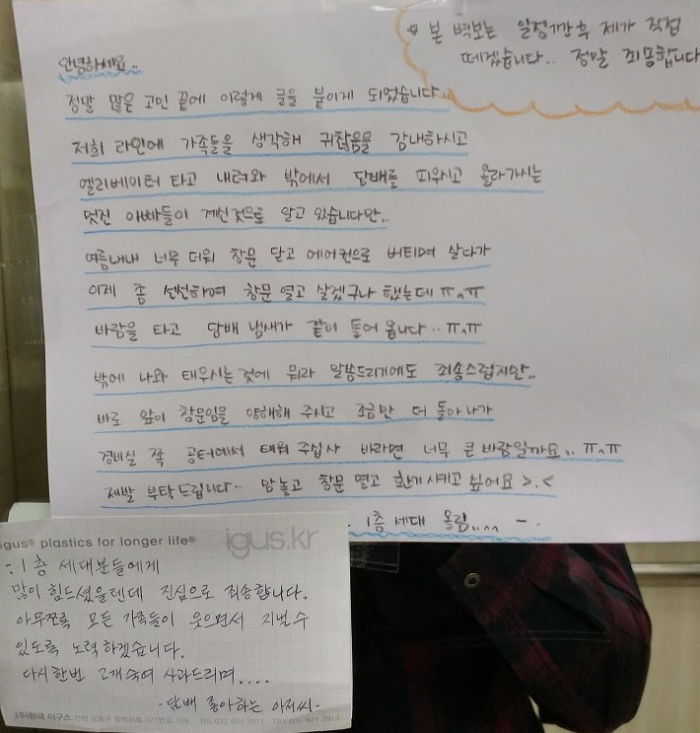 ※ 본 벽보는 일정기간 후 제가 직접
떼겠습니다.. 정말 죄송합니다
안녕하세요..
정말 많은 고민 끝에 이렇게 글을 붙이게 되었습니다..
저희 라인에 가족들을 생각해 귀찮음을 감내하시고
엘리베이터 타고 내려와 밖에서 담배를 피우시고 올라가시는
멋진 아빠들이 계신것으로 알고 있습니다만..
여름내내 너무 더워 창문 닫고 에어컨으로 버티며 살다가
이제 좀 선선하여 창문 열고 살겠구나 했는데 ㅠ.ㅠ
바람을 타고 담배 냄새가 같이 들어 옵니다.. ㅠ.ㅠ
밖에 나와 태우시는 것에 뭐라 말씀드리기에도 죄송스럽지만..
바로 앞이 창문임을 양해해 주시고 조금만 더 돌아 나가
경비실 쪽 공터에서 태워 주십사 바라면 너무 큰 바람일까요.. ㅠ.ㅠ
제발 부탁드립니다.. 맘놓고 창문 열고 환기시키고 싶어요 >.<
1층 세대 올림....
igus® plastics for longer life® igus.kr
: 1층 세대분들에게
많이 힘드셨을텐데 진심으로 죄송합니다.
아무쪼록 모든 가족들이 웃으면서 지낼 수
있도록 노력하겠습니다.
다시한번 고개숙여 사과드리며....
-담배 좋아하는 아저씨-